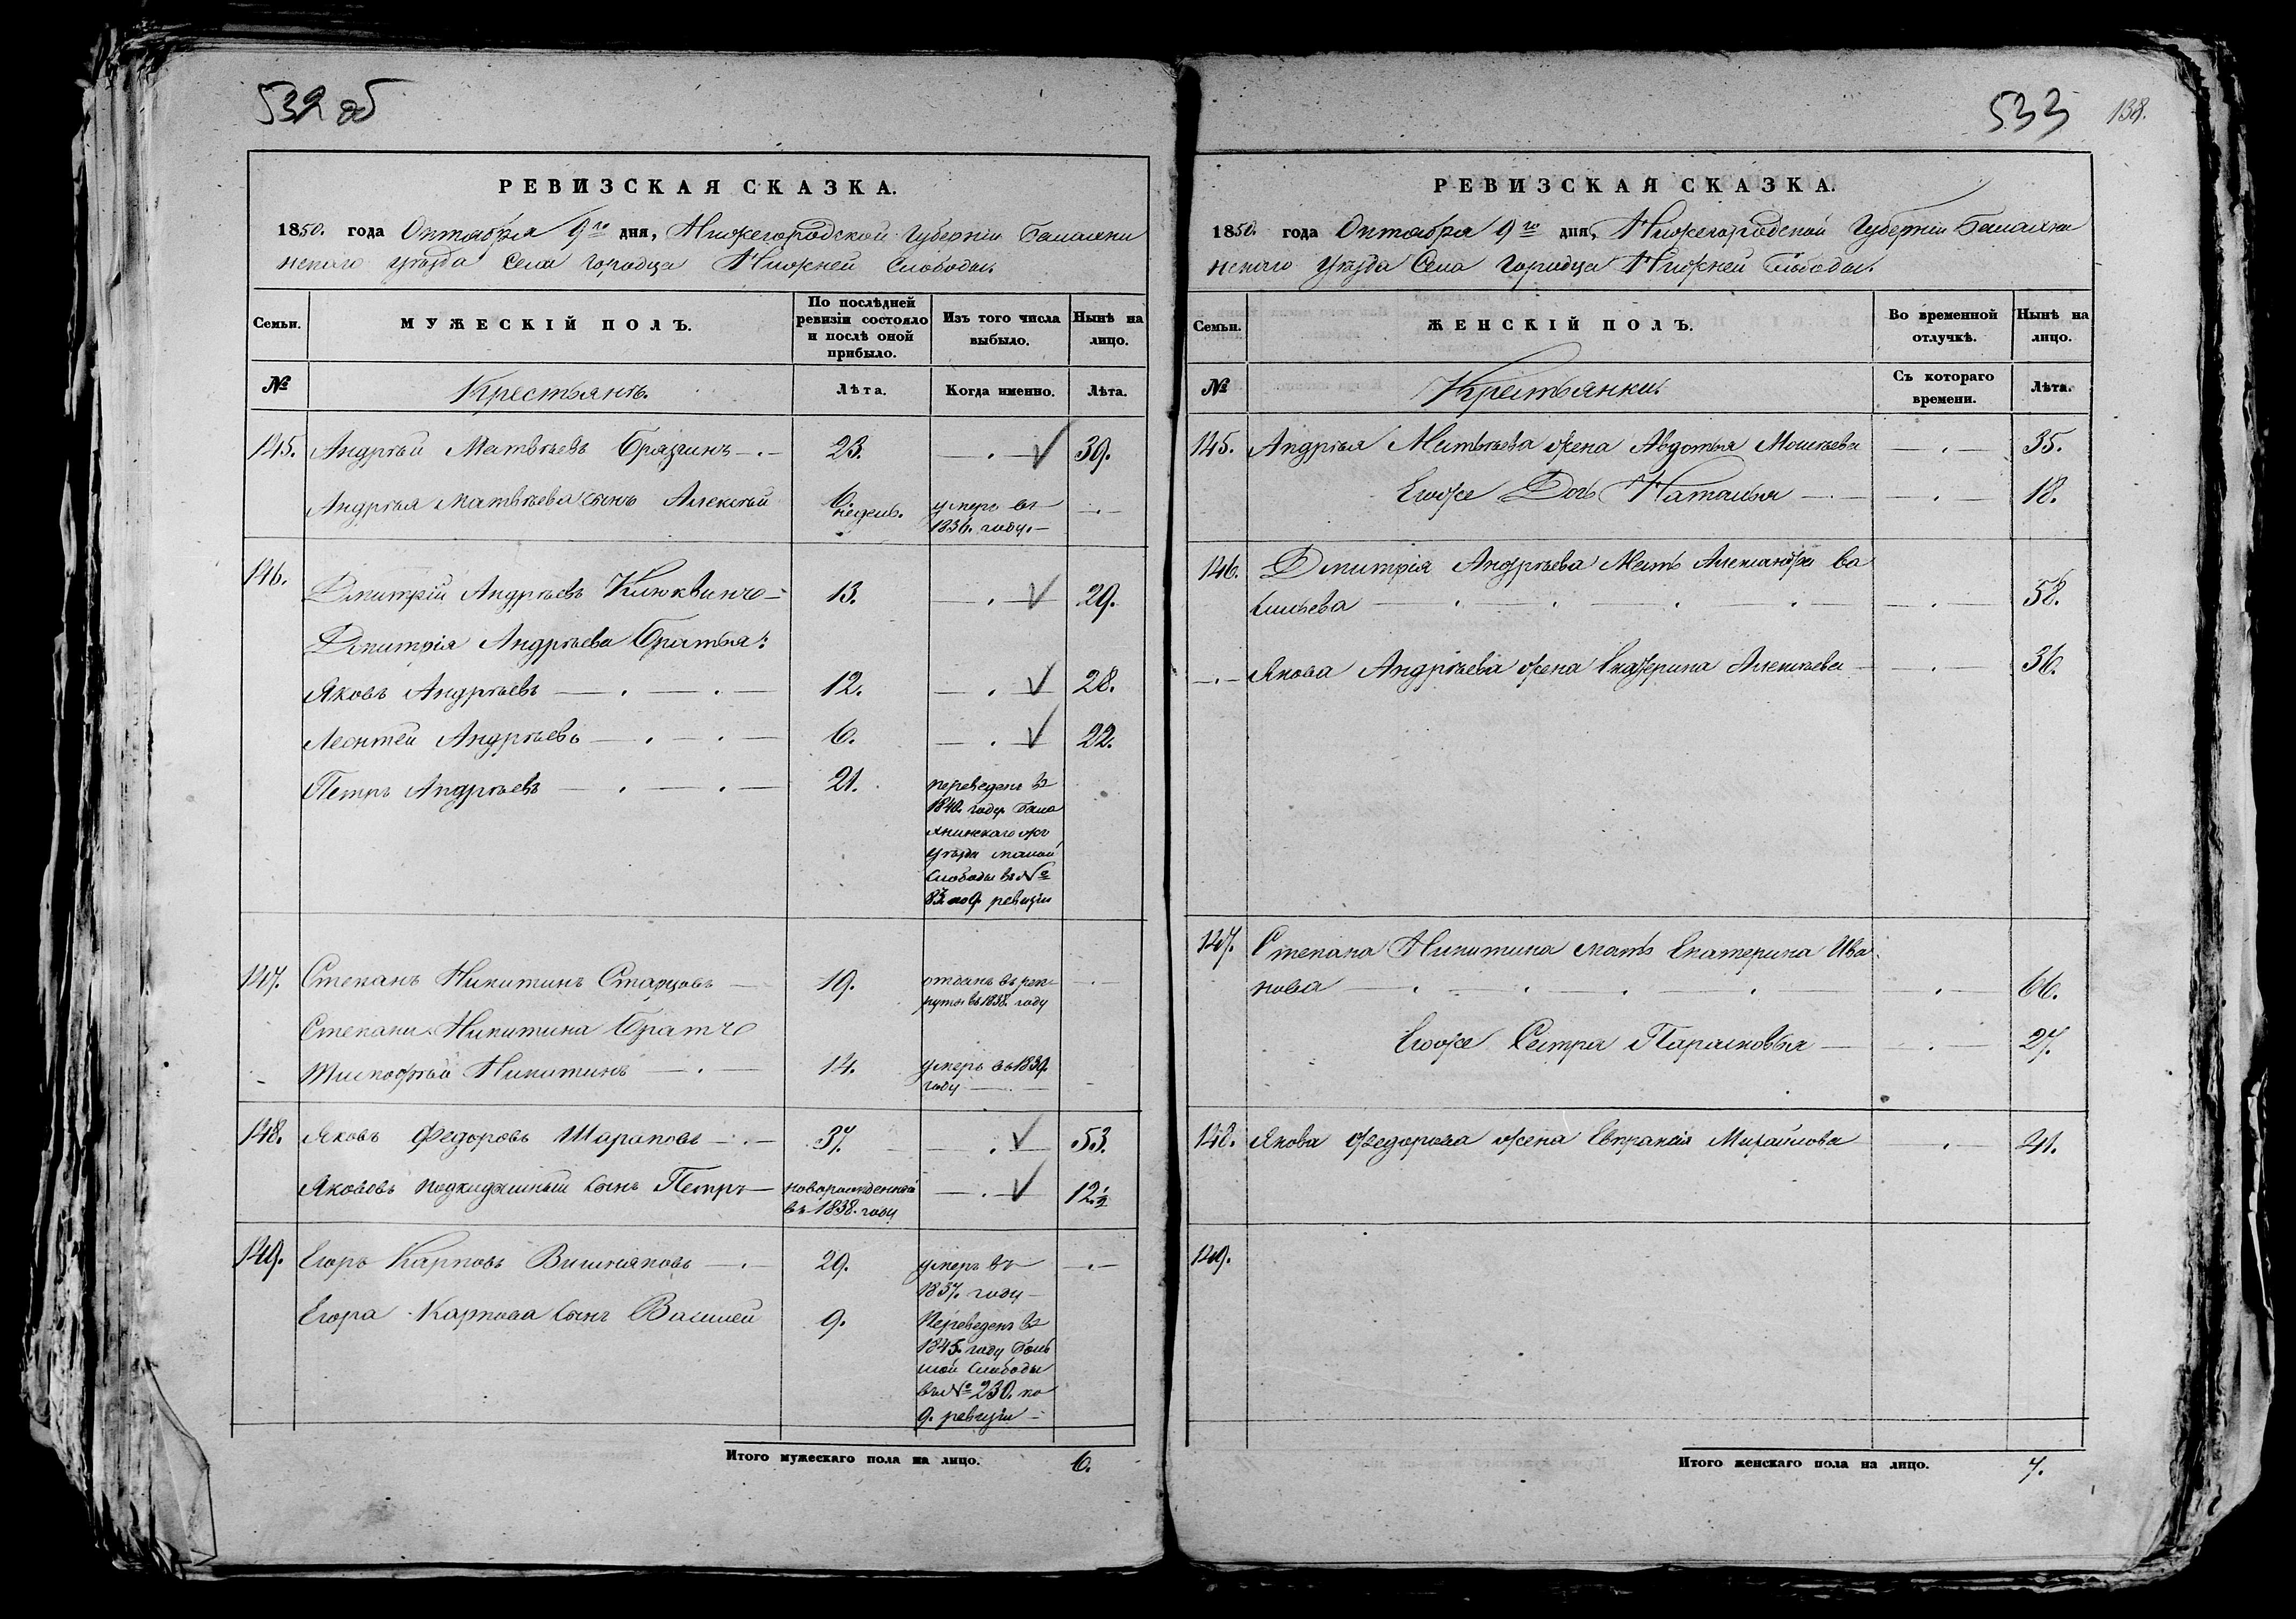 532 об
РЕВИЗСКАЯ СКАЗКА.
1850. года Октября 9го дня, Нижегородской Губерніи Балахни
нскаго уѣзда Села Городца Нижней Слободы.
Семьи. МУЖЕСКІЙ ПОЛЪ. По послѣдней ревизіи состояло и послѣ оной прибыло. Изъ того числа выбыло. Нынѣ на лицо.
№ Крестьянъ. Лѣта. Когда именно. Лѣта.
145. Андрѣй Матвѣевъ Брязгинъ 23. 39.
Андрѣя Матвѣева сынъ Алексѣй 6 недель. умеръ въ
1836. году.
146.
Дмитрій Андрѣевъ Клюквинъ 13. 29.
Дмитрія Андрѣева братья:
Яковъ Андрѣевъ 12. 28.
Леонтей Андрѣевъ 6. 22.
Петръ Андрѣевъ 21. переведенъ въ
1840. году Бала
хнинскаго же
уѣзда малой
Слободы въ №
83. по 9. ревизіи
147. Степанъ Никитинъ Старцовъ 19. отданъ въ рек-
руты въ 1838. году
Степана Никитина братъ
Тимофѣй Никитинъ 14. умеръ въ 1839.
году
148. Яковъ Федоровъ Шараповъ 37. 53.
Яковъ подкидышный сынъ Петръ новорожденный
въ 1838. году 12 1/2
149. Егоръ Карповъ Вишняковъ 29. умеръ въ
1837. году
Егора Карпова сынъ Василей 9. Переведенъ въ
1845. году Боль
шой Слободы
въ № 230. по
9. ревизіи
Итого мужескаго пола на лицо. 6.
533 138.
РЕВИЗСКАЯ СКАЗКА.
1850. года Октября 9го дня, Нижегородской Губерніи Балахни
нскаго Уѣзда Села Городца Нижней Слободы.
Семьи. ЖЕНСКІЙ ПОЛЪ. Во временной отлучкѣ. Нынѣ на лицо.
№ Крестьянки. Съ котораго времени. Лѣта.
145. Андрѣя Матвѣева жена Авдотья Моисѣева 35.
Егоже Дочь Наталья 18.
146. Дмитрія Андрѣева Мать Александра Ва
сильева 58.
Якова Андрѣева жена Екатерина Алексѣева 36.
147. Степана Никитина мать Екатерина Ива
нова 66.
Егоже Сестра Парасковья 27.
148. Якова Федорова жена Евпраксія Михайлова 41.
149.
Итого женскаго пола на лицо. 7.